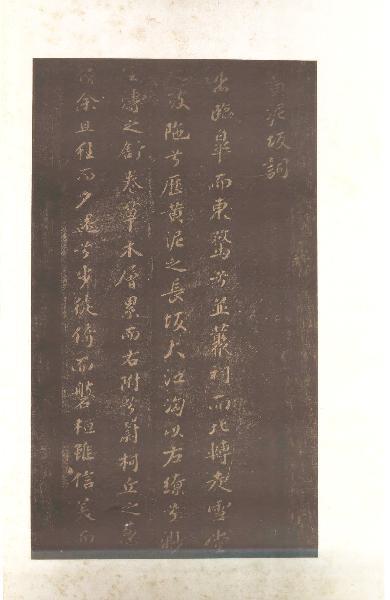 黃泥坂詞
出臨皋而東騖兮並藂祠而北轉走雪堂
之坡陁兮歷黃泥之長坂大江洶以左繚兮渺
雲濤之舒卷草木層累而右附兮蔚柯丘之蔥
蒨余旦往而夕還兮步徙倚而磐桓雖信美而